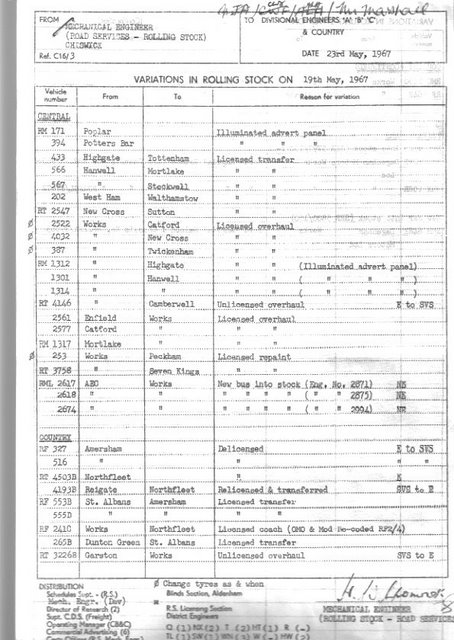 FROM
MECHANICAL ENGINEER
(ROAD SERVICES - ROLLING STOCK)
CHISWICK
Ref. C16/3
TO DIVISIONAL ENGINEERS 'A' 'B' 'C'
& COUNTRY
DATE 23rd May, 1967
VARIATIONS IN ROLLING STOCK ON 19th May, 1967
Vehicle number From To Reason for variation
CENTRAL
RM 171 Poplar Illuminated advert panel
394 Potters Bar " " "
433 Highgate Tottenham Licensed transfer
566 Hanwell Mortlake " "
567 " Stockwell " "
202 West Ham Walthamstow " "
RT 2547 New Cross Sutton " "
Ø 2522 Works Catford Licensed overhaul
Ø 4032 " New Cross " "
Ø 387 " Twickenham " "
RM 1312 " Highgate " " (Illuminated advert panel)
1301 " Hanwell " " ( " " " )
1314 " " " " ( " " " )
RT 4146 " Camberwell Unlicensed overhaul E to SVS
2561 Enfield Works Licensed overhaul
2577 Catford " " "
RM 1317 Mortlake " " "
Ø 253 Works Peckham Licensed repaint
RT 3758 " Seven Kings " "
RML 2617 AEC Works New bus into stock (Eng. No. 2871) NE
2618 " " " " " " ( " " 2875) NE
2674 " " " " " " ( " " ) NE
COUNTRY
RF 327 Amersham Delicensed E to SVS
516 " " " "
RT 4503B Northfleet " E
4193B Reigate Northfleet Relicensed & transferred SVS to E
RF 553B St. Albans Amersham Licensed transfer
555B " " " "
RF 241O Works Northfleet Licensed coach (GMO & Mod Re-coded RF2/4)
265B Dunton Green St. Albans Licensed transfer
RT 3226B Garston Works Unlicensed overhaul SVS to E
DISTRIBUTION
Schedules Supt. - (R.S.)
Mech. Engr. (Dev)
Director of Research (2)
Supt. C.D.S. (Freight)
Operating Manager (CB&C)
Commercial Advertising (6)
Ø Change tyres as & when
Blinds Section, Aldenham
R.S. Licensing Section
District Engineers
MECHANICAL ENGINEER
(ROAD SERVICES - ROLLING STOCK)